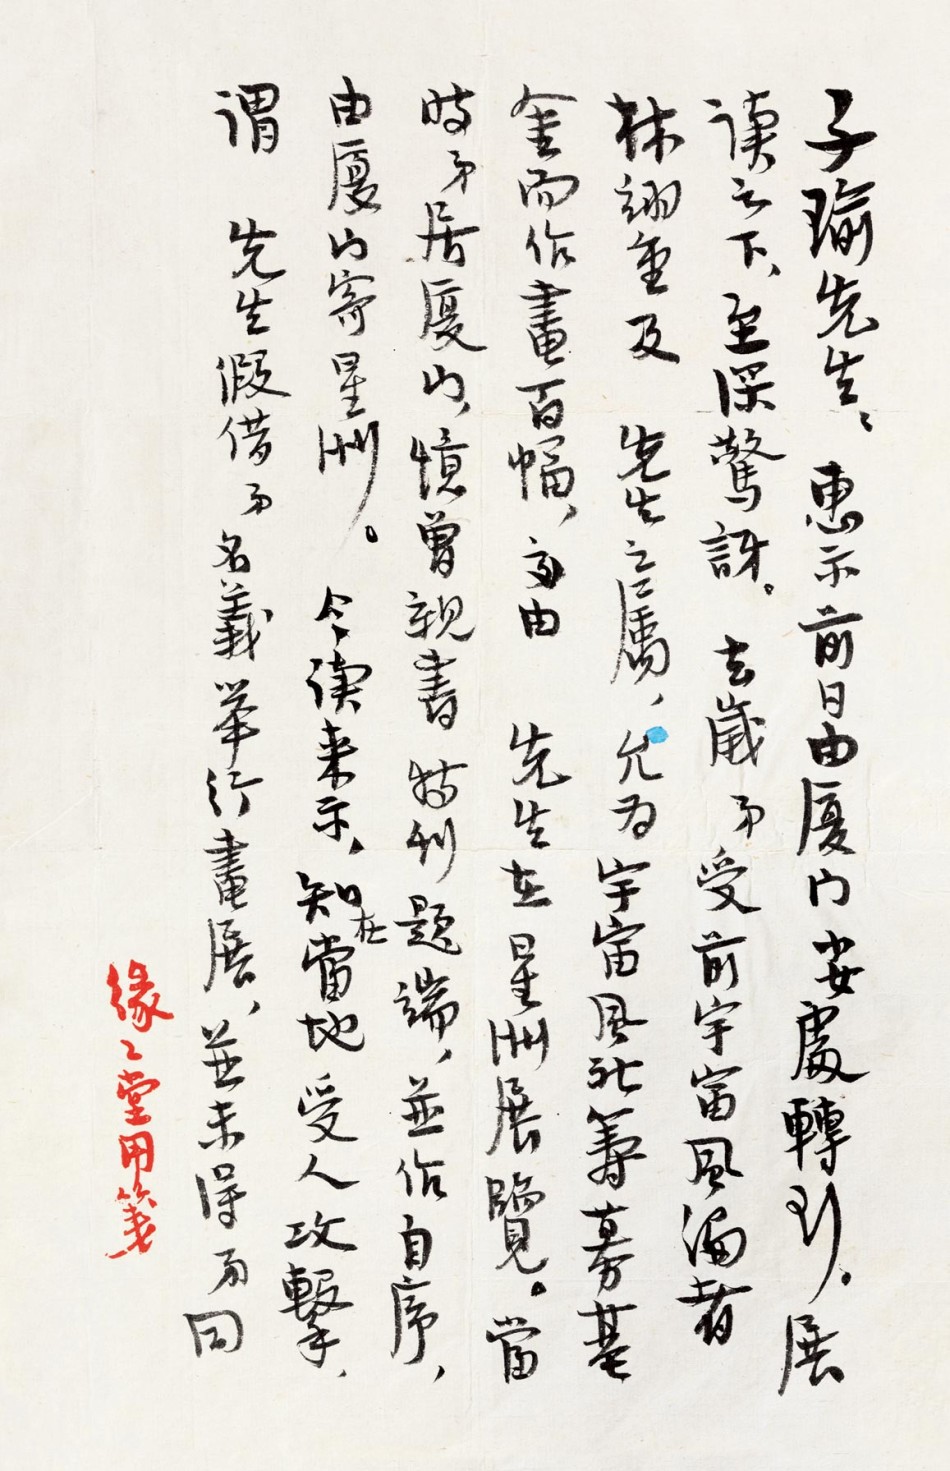 子瑜先生、惠示前日由廈门安處轉到。展
读之下、至深驚訝。去歲弟受前宇宙風编者
林翊重及先生之屬、允为宇宙風社筹募基
金而作畫百幅、交由先生在星洲展覽。當
时弟居廈门、憶曾親書特刊题端、並作自序、
由廈门寄星洲。今读来示、知在當地受人攻擊、
谓先生假借弟名義举行畫展、並未得弟同
缘缘堂用箋